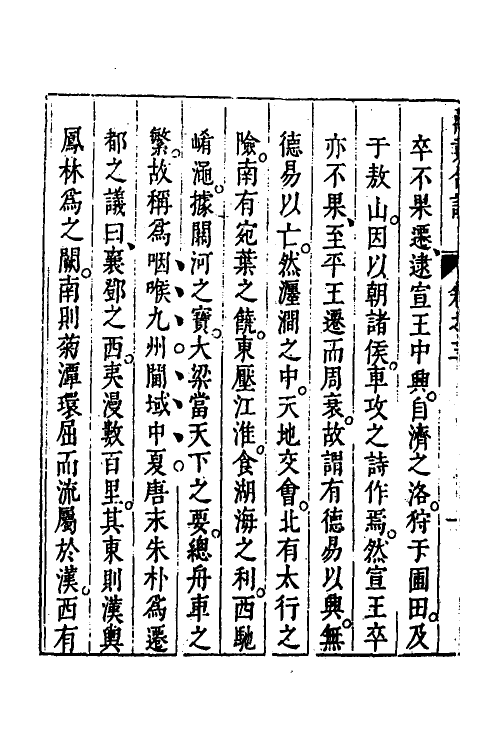 卒不果遷、逮宣王中興。自濟之洛。狩于圃田。及
于敖山。因以朝諸侯。車攻之詩作焉。然宣王卒
亦不果、至平王遷而周衰。故謂有德易以興。無
德易以亡。然瀍澗之中。天地交會。北有太行之
險。南有宛葉之饒。東壓江淮。食湖海之利。西馳
崤澠。據關河之寶。大梁當天下之要。總舟車之
繁。故稱爲咽喉九州閫域中夏。唐末朱朴爲遷
都之議曰、襄鄧之西。夷漫數百里。其東則漢輿
鳳林爲之關。南則菊潭環屈而流屬於漢。西有